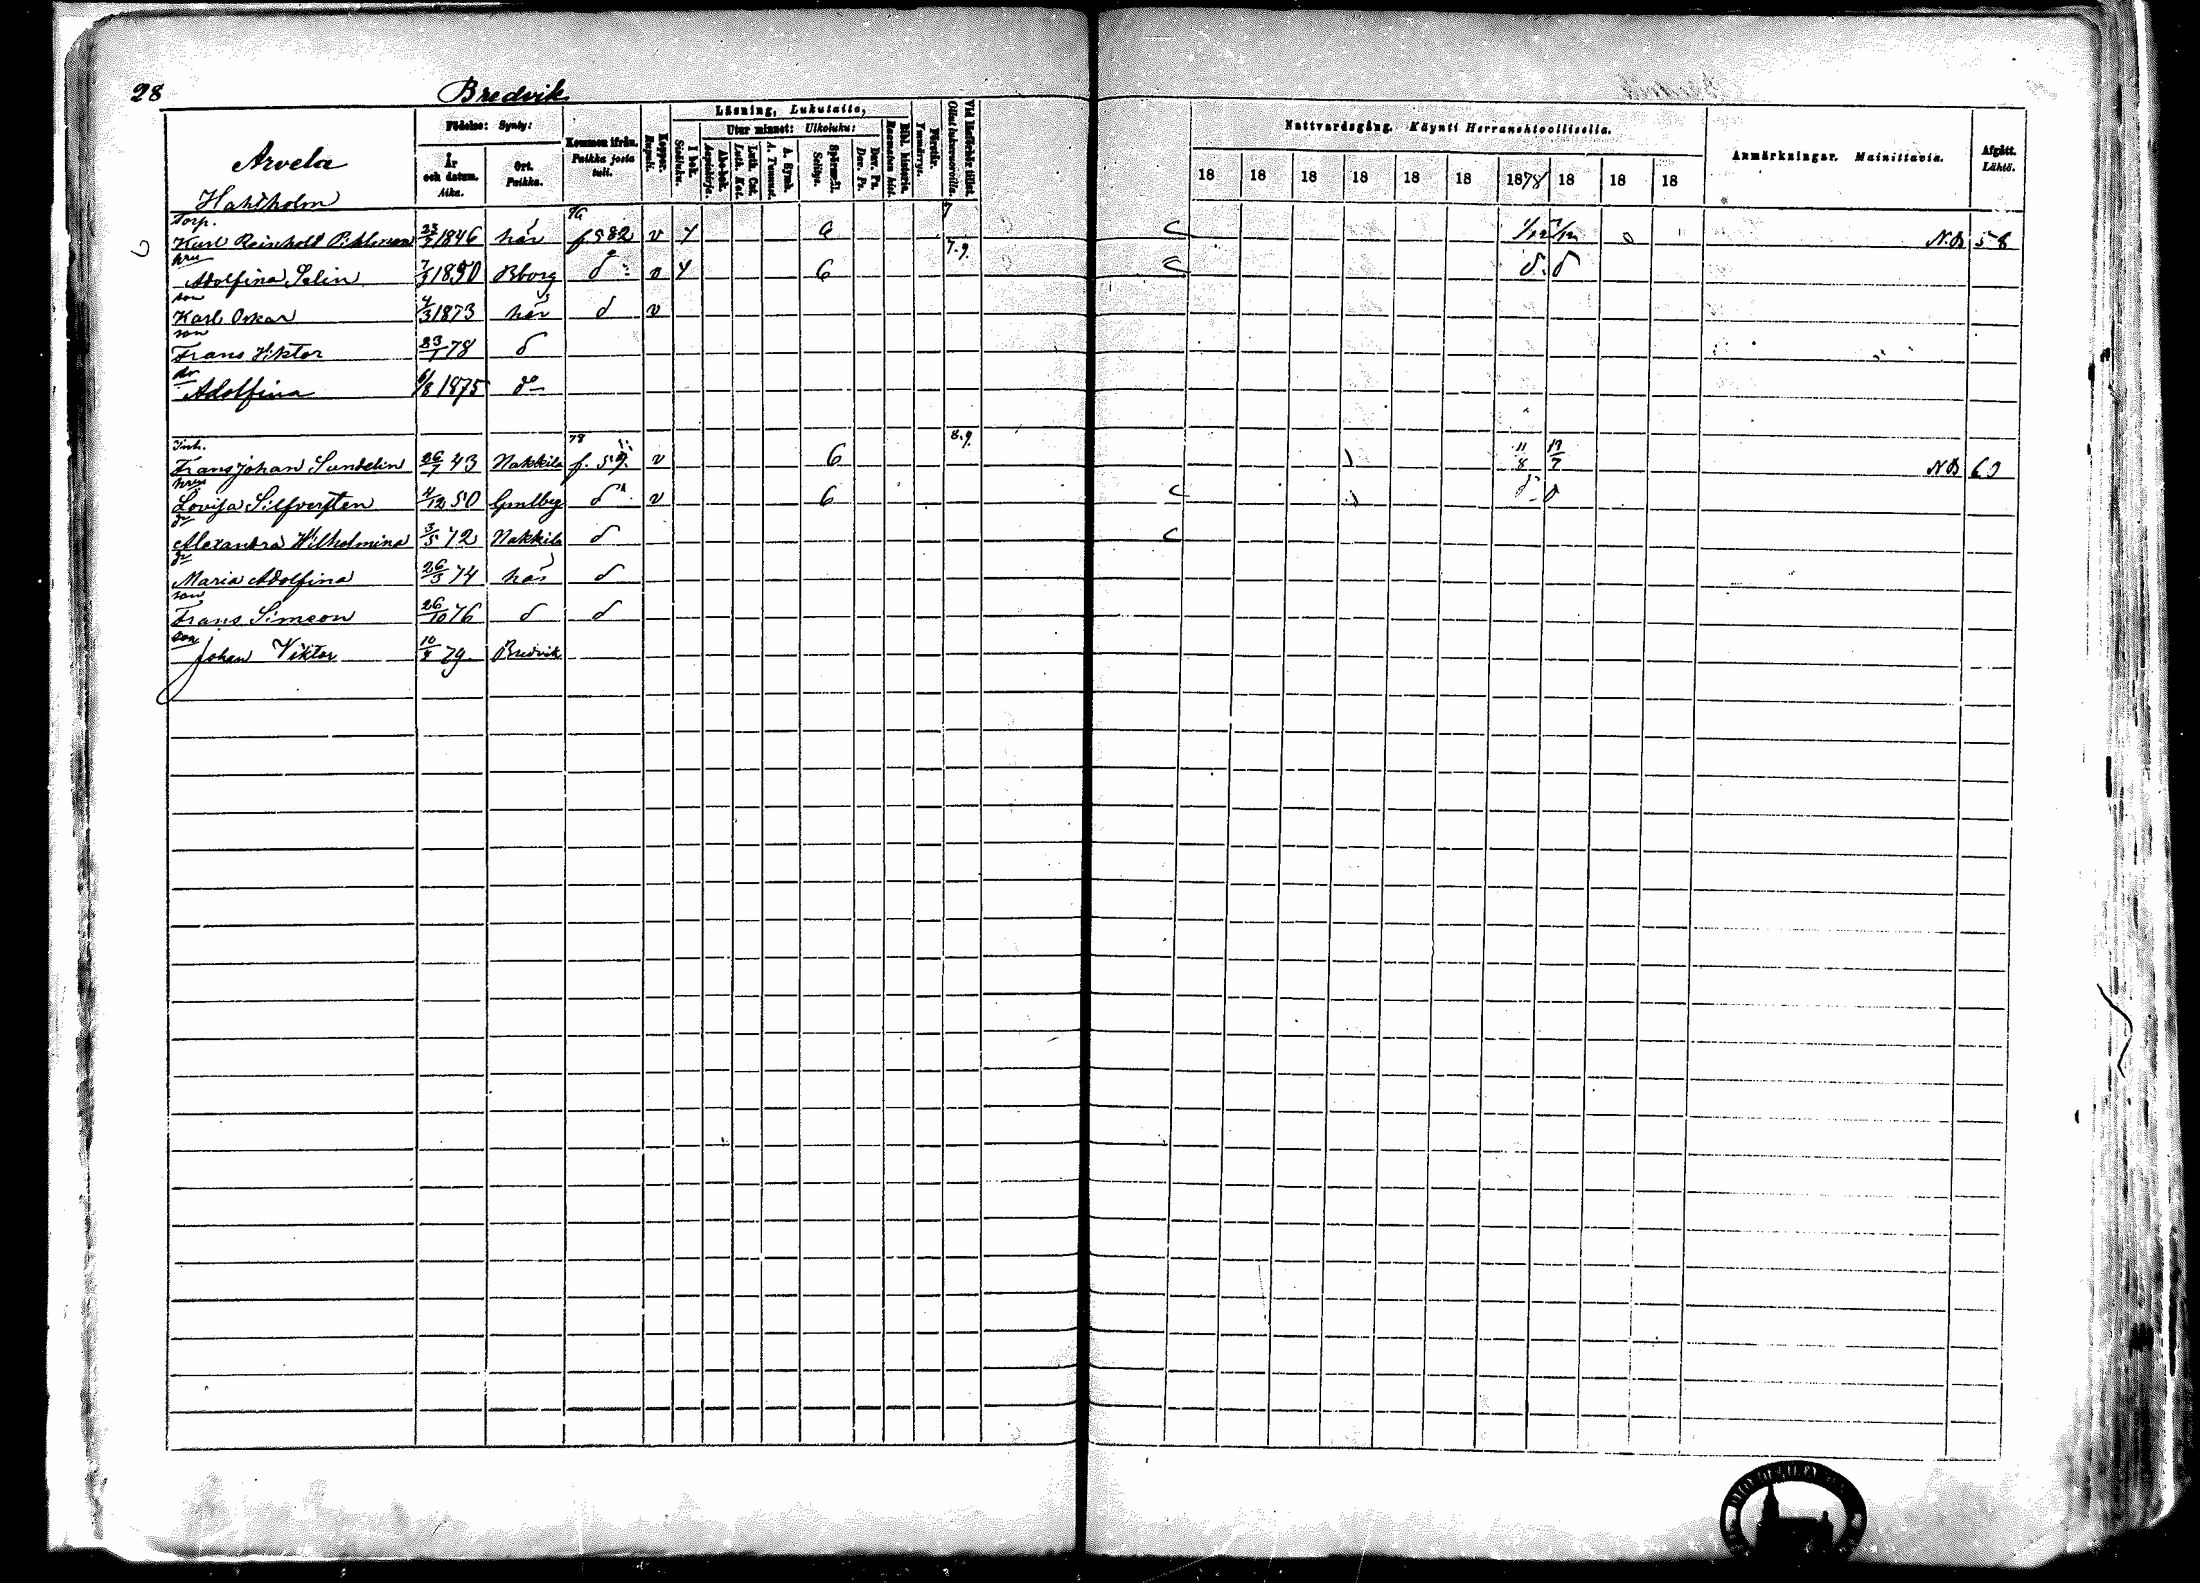 28 Bredvik
Läsning, Lukutaito,
Födelse: Synty:
Kommen ifrån. Paikka josta tuli.
Koppor. Rupuli.
I bok. Sisältuku.
Utur minnet: Ulkoluku:
Abc-bok. Aapiskirja.
Luth. Cat. Luth. Kat.
A. Symb. A. Tunnust.
Spörsmål. Selitys.
Dav. Ps. Dav. Ps.
Bibl. historia.
Förstår. Ymmärrys.
Vid läsförhör tillst.
År och datum. Aika.
Ort. Paikka.
Nattvardsgång. Käynti Herranehtoollisella.
18 18 18 18 18 18 1878 18 18 18
Anmärkningar. Mainittavia.
Afgått. Lähtö.
Arvela
Hahlholm
Torp.
Karl Reinhold 23/7 1846 här f 582 v 4 a 7 N.B. 58
hru
Adolfina Selin 7/3 1850 Bborg d v 4 6 7.9. d. d
son
Karl Oskar 4/3 1873 här d v
son
Frans Viktor 23/1 78 d
dr
Adolfina 6/8 1875 do
Inh. 78 8.9.
Frans Johan Sundelin 26/7 43 Nakkila f. 59. v 6 11/8 17/7 NB 63
hru
Lovisa Silfversten 4/12 50 d v 6
dr
Alexandra Wilhelmina 3/5 72 Nakkila d
dr
Maria Adolfina 26/3 74 här d
son
Frans Simeon 26/10 76 d d
son
Johan Viktor 10/8 79. Bredvik